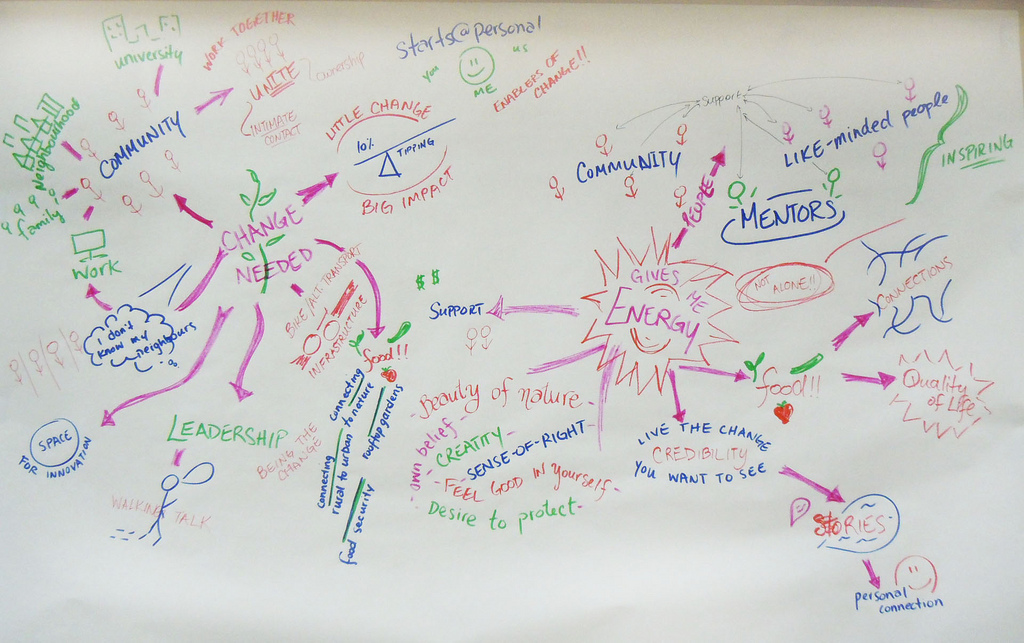 university
WORK TOGETHER
UNITE
ownership
INTIMATE
CONTACT
starts@personal
you
ME
us
ENABLERS OF
CHANGE!!
Neighbourhood
family
COMMUNITY
work
I don't
know my
neighbours
LITTLE CHANGE
10%
TIPPING
BIG IMPACT
CHANGE
NEEDED
SPACE
FOR INNOVATION
LEADERSHIP
BEING THE
CHANGE
WALKING TALK
BIKE/ALT. TRANSPORT
INFRASTRUCTURE
food!!
connecting
to nature
connecting
rural to urban
rooftop gardens
food security
Support
COMMUNITY
LIKE-minded people
MENTORS
INSPIRING
PEOPLE
GIVES
ME
ENERGY
NOT
ALONE!!
CONNECTIONS
$ $
SUPPORT
food!!
Quality
of Life
Beauty of nature
own belief
CREATITY
-SENSE-OF-RIGHT
-FEEL GOOD IN Yourself-
Desire to protect-
LIVE THE CHANGE
CREDIBILITY
YOU WANT TO SEE
StORIES
personal
connection